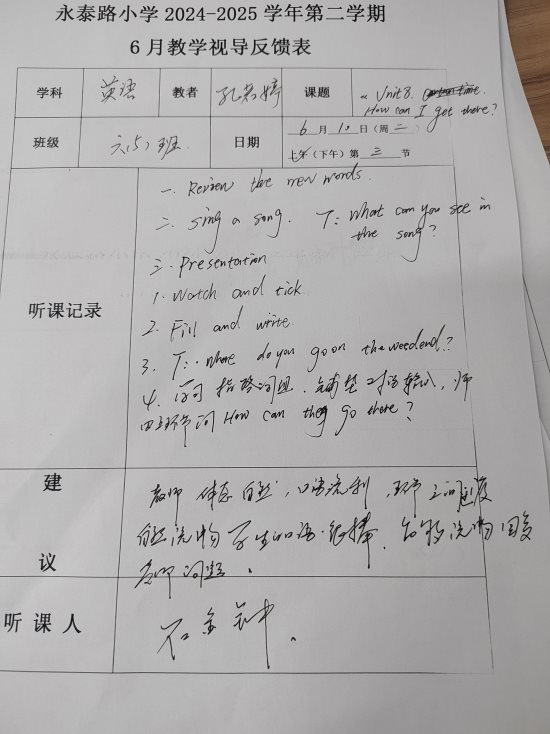 永泰路小学 2024-2025 学年第二学期
6 月教学视导反馈表
学科 英语 教者 孔 婷 课题 Unit 8.
How can I get there?
班级 六(5)班. 日期 6 月 10 日（周 二 ）
上午（下午）第 三 节
听课记录
一. Review the new words.
二. Sing a song. T: What can you see in
the song?
三. Presentation
1. Watch and tick.
2. Fill and write.
3. T: Where do you go on the weekend?
4. 师
环节问 How can they go there?
建议
教师 自然, 口语流利, 环节之间过渡
自然流畅 学生口语很棒. 能够流畅回答
老师问题.
听课人
石金钟.